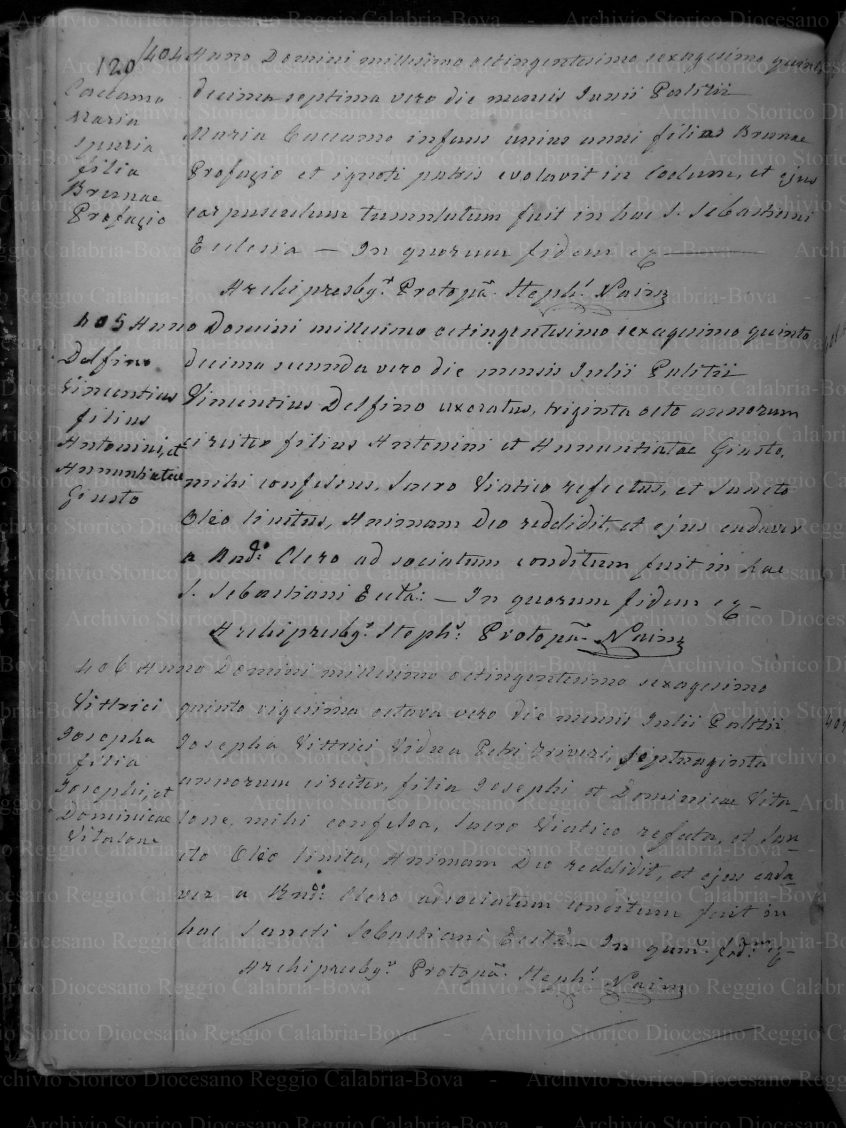 120
404 Anno Domini millesimo octingentesimo sexagesimo quinto
decima septima vero die mensis Junii Politii
Maria Caccamo infans unius anni filias Brunae
Profazio et ignoti patris evolavit in Coelum, et ejus
corpusculum tumulatum fuit in hac S. Sebastiani
Ecclesia — In quorum fidem
Archipresbyr. Protopa. Steph.
Caccamo
Maria
spuria
filia
Brunae
Profazio
405 Anno Domini millesimo octingentesimo sexagesimo quinto
decima secunda vero die mensis Julii Politii
Vincentius Delfino uxoratus, triginta octo annorum
circiter filius Antonini et Annuntiatae Giusto,
mihi confessus, Sacro Viatico refectus, et Sancto
Oleo linitus, Animam Deo reddidit, et ejus cadaver
a Rndo. Clero ad sociatum conditum fuit in hac
S. Sebastiani Eccta: — In quorum fidem
Archipresbyr. Steph. Protopa.
Delfino
Vincentius
filius
Antonini, et
Annuntiatae
Giusto
406 Anno Domini millesimo octingentesimo sexagesimo
quinto vigesima octava vero die mensis Julii Politii
Josepha Vittrici Vidua Petri septuaginta
annorum circiter, filia Josephi et Dominicae Vita-
lone, mihi confessa, Sacro Viatico refecta, et San-
cto Oleo linita, Animam Deo reddidit, et ejus cada-
ver a Rndo. Clero adsociatum conditum fuit in
hac Sancti Sebastiani Eccta. — In quorum. fidem
Archipresbyr. Protopa. Steph.
Vittrici
Josepha
filia
Josephi, et
Dominicae
Vitalone
Archivio Storico Diocesano Reggio Calabria-Bova